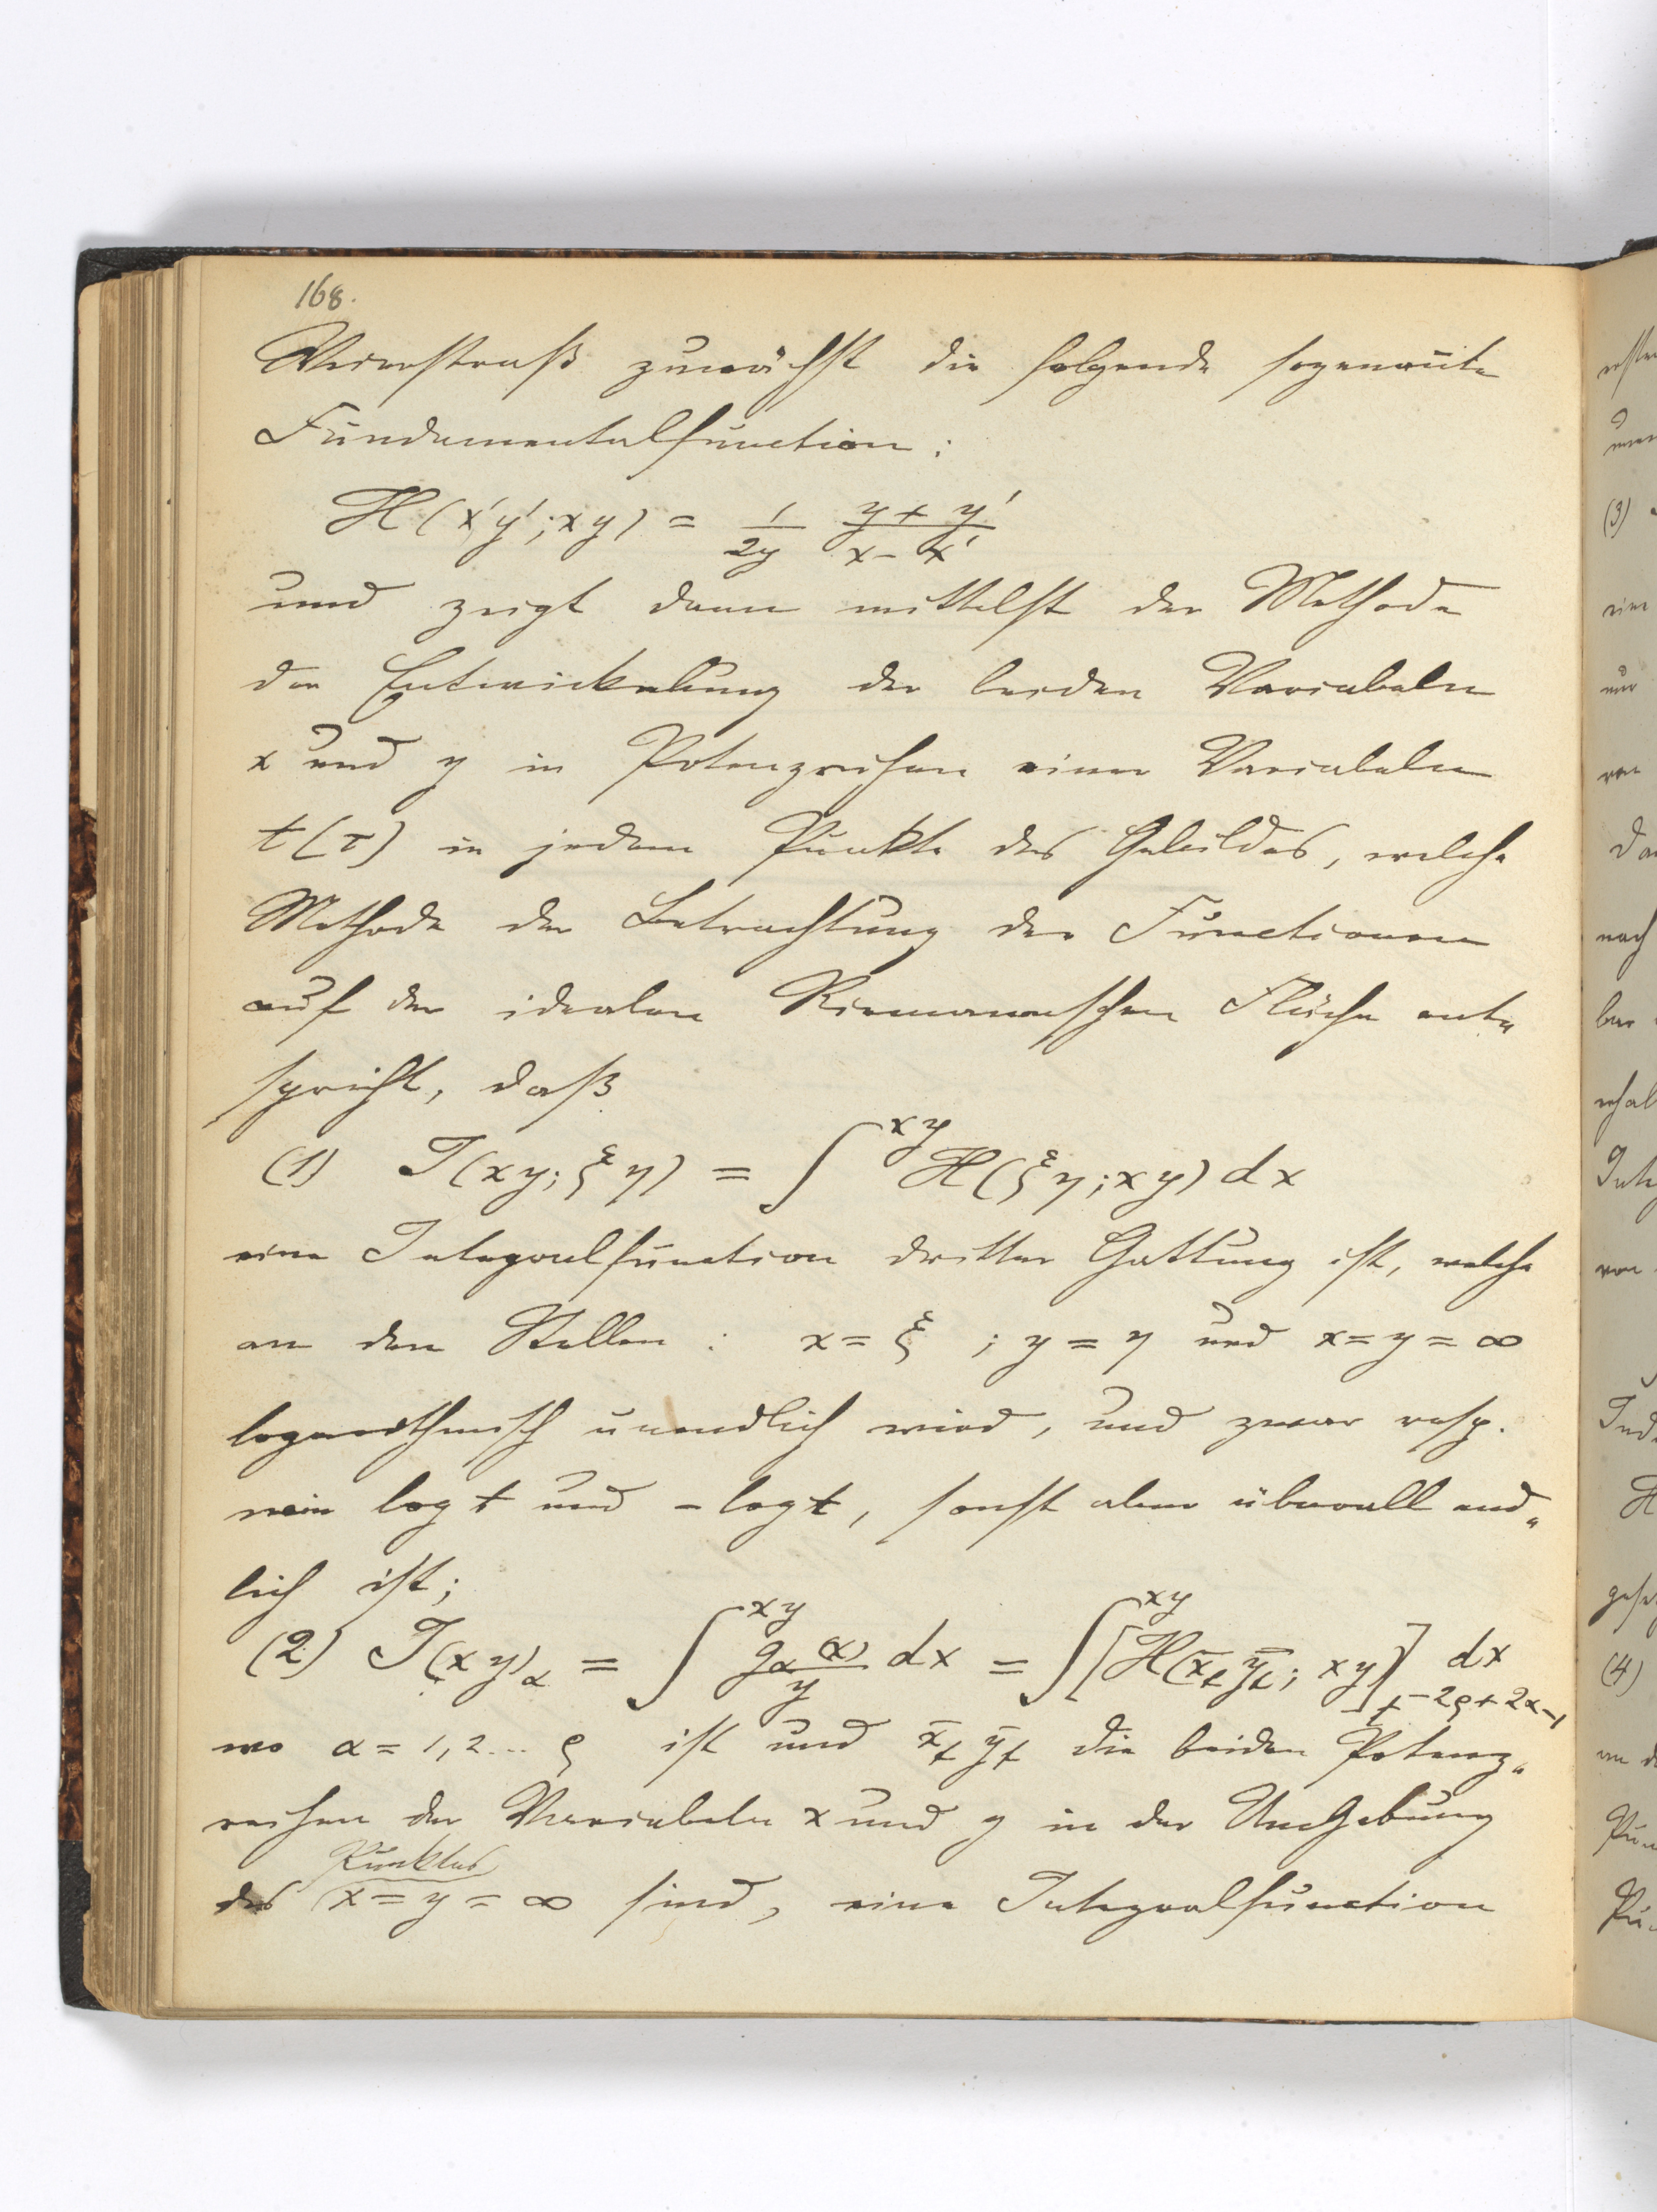 168.
Weierstraß zunächst die folgende sogenannte
Fundamentalfunction:
H(x'y';xy) = 1/2y (y + y')/(x − x')
und zeigt dann mittelst der Methode
der Entwickelung der beiden Variabeln
x und y in Potenzreihen einer Variabeln
t(τ) in jedem Punkte des Gebildes, welche
Methode der Betrachtung der Functionen
auf der idealen Riemannschen Fläche ent„
spricht, daß
(1) J(xy; ξη) = ∫^{xy} H(ξη; xy) dx
eine Integralfunction dritter Gattung ist, welche
an den Stellen: x = ξ ; y = η und x = y = ∞
logarithmisch unendlich wird, und zwar resp.
wie log t und − log t, sonst aber überall end„
lich ist;
(2) J(xy)_α = ∫^{xy} g_α(x)/y dx = ∫^{xy} [H(x̄_t ȳ_t; xy)]_{t^{−2ρ+2α−1}} dx
wo α = 1, 2 ... ρ ist und x̄_t ȳ_t die beiden Potenz„
reihen der Variabeln x und y in der Umgebung
des Punktes x = y = ∞ sind, eine Integralfunction